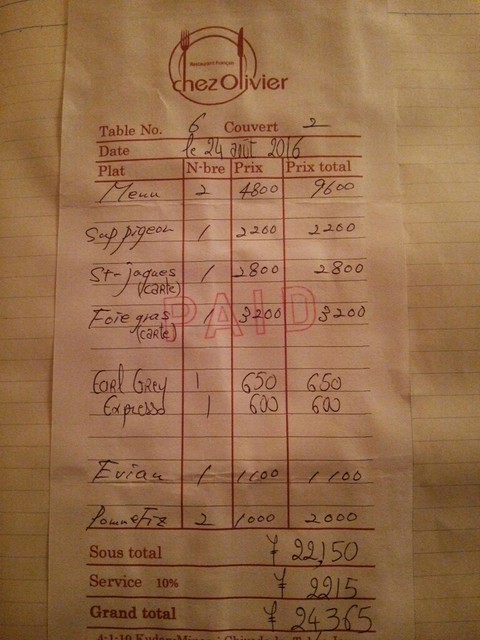 Restaurant français
chez Olivier
Table No. 6 Couvert 2
Date le 24 août 2016
Plat N-bre Prix Prix total
Menu 2 4800 9600
Sup pigeon 1 2200 2200
St-jaques 1 2800 2800
(carte)
PAID
Foie gras 1 3200 3200
(carte)
Earl Grey 1 650 650
Expresso 1 600 600
Evian 1 1100 1100
2 1000 2000
Sous total ¥ 22,150
Service 10% ¥ 2215
Grand total ¥ 24365